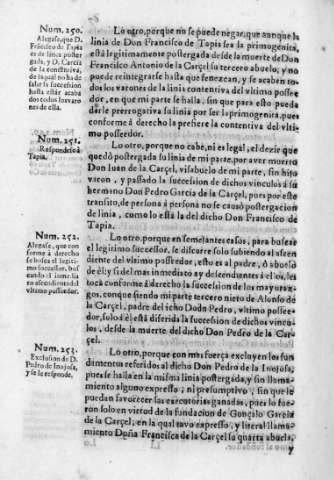 Num. 250.
Alegase, que D.
Frãcisco de Tapia
es de linea postergada,
y D. Garcia
de la contentiva,
de la qual no ha de
salir la succession
hasta estàr acabados
todos los varones
de ella.
Lo otro, porque no se puede negar, que aunque la
linea de Don Francisco de Tapia sea la primogenita,
està legitimamente postergada desde la muerte de Don
Francisco Antonio de la Carçel su tercero abuelo, y no
puede reintegrarse hasta que fenezcan, y se acaben todos
los varones de la linea contentiva del vltimo posseedor,
en que mi parte se halla, sin que para esto pueda
darle prerrogativa su linea por ser la primogenita, pues
conforme à derecho la prefiere la contentiva del vltimo
posseedor.
Num. 251.
Respondese à
Tapia.
Lo otro, porque no cabe, ni es legal, el dezir que
quedò postergada su linea de mi parte, por aver muerto
Don Iuan de la Carçel, visabuelo de mi parte, sin hijo
varon, y passado la succession de dichos vinculos à su
hermano Don Pedro Garcia de la Carçel, pues por este
transito, de persona à persona no se causò postergacion
de linea, como lo està la del dicho Don Francisco de
Tapia.
Num. 252.
Alegase, que conforme
à derecho
se busca el legitimo
successor, buscando
el inmediato
en ascendientes del
vltimo posseedor.
Lo otro, porque en semejantes casos, para buscar
el legitimo successor, se discurre solo subiendo al ascendiente
del vltimo posseedor, esto es al padre, ò abuelo
de èl; y si del mas inmediato ay descendientes à el, es les
toca conforme à derecho la succession de los mayorazgos,
con que siendo mi parte tercero nieto de Alonso de
la Carçel, padre del dicho Don Pedro, vltimo posseedor,
solo à èl està diferida la succession de dichos vinculos,
desde la muerte del dicho Don Pedro de la Carçel.
Num. 253.
Exclusion de D.
Pedro de Inojosa,
y se le responde.
Lo otro, porque con mas fuerça excluyen los fundamentos
referidos al dicho Don Pedro de la Inojosa,
pues se halla en la misma linea postergada, y sin llamamiento
alguno expresso, ni presumptivo, sin que le
puedan favorecer las executorias ganadas, pues lo fueron
solo en virtud de la fundacion de Gonçalo Garcia
de la Carçel, en la qual tuvo expresso, y literal llamamiento
Doña Francisca de la Carçel su quarta abuela,
y